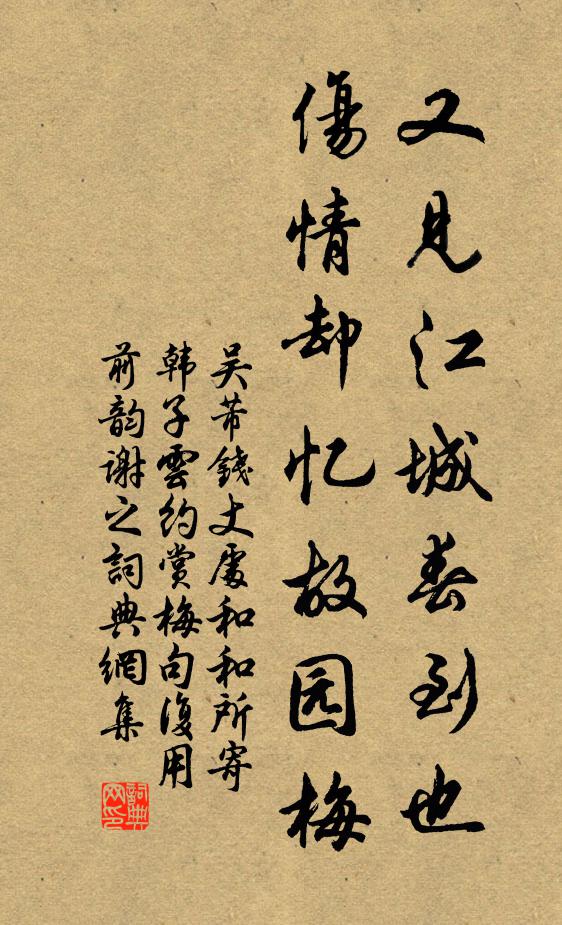 又見江城春到也
傷情却忆故园梅
吴芾錢丈處和和所寄
韩子雲約赏梅句復用
前韵謝之詞典網集
詞典网印